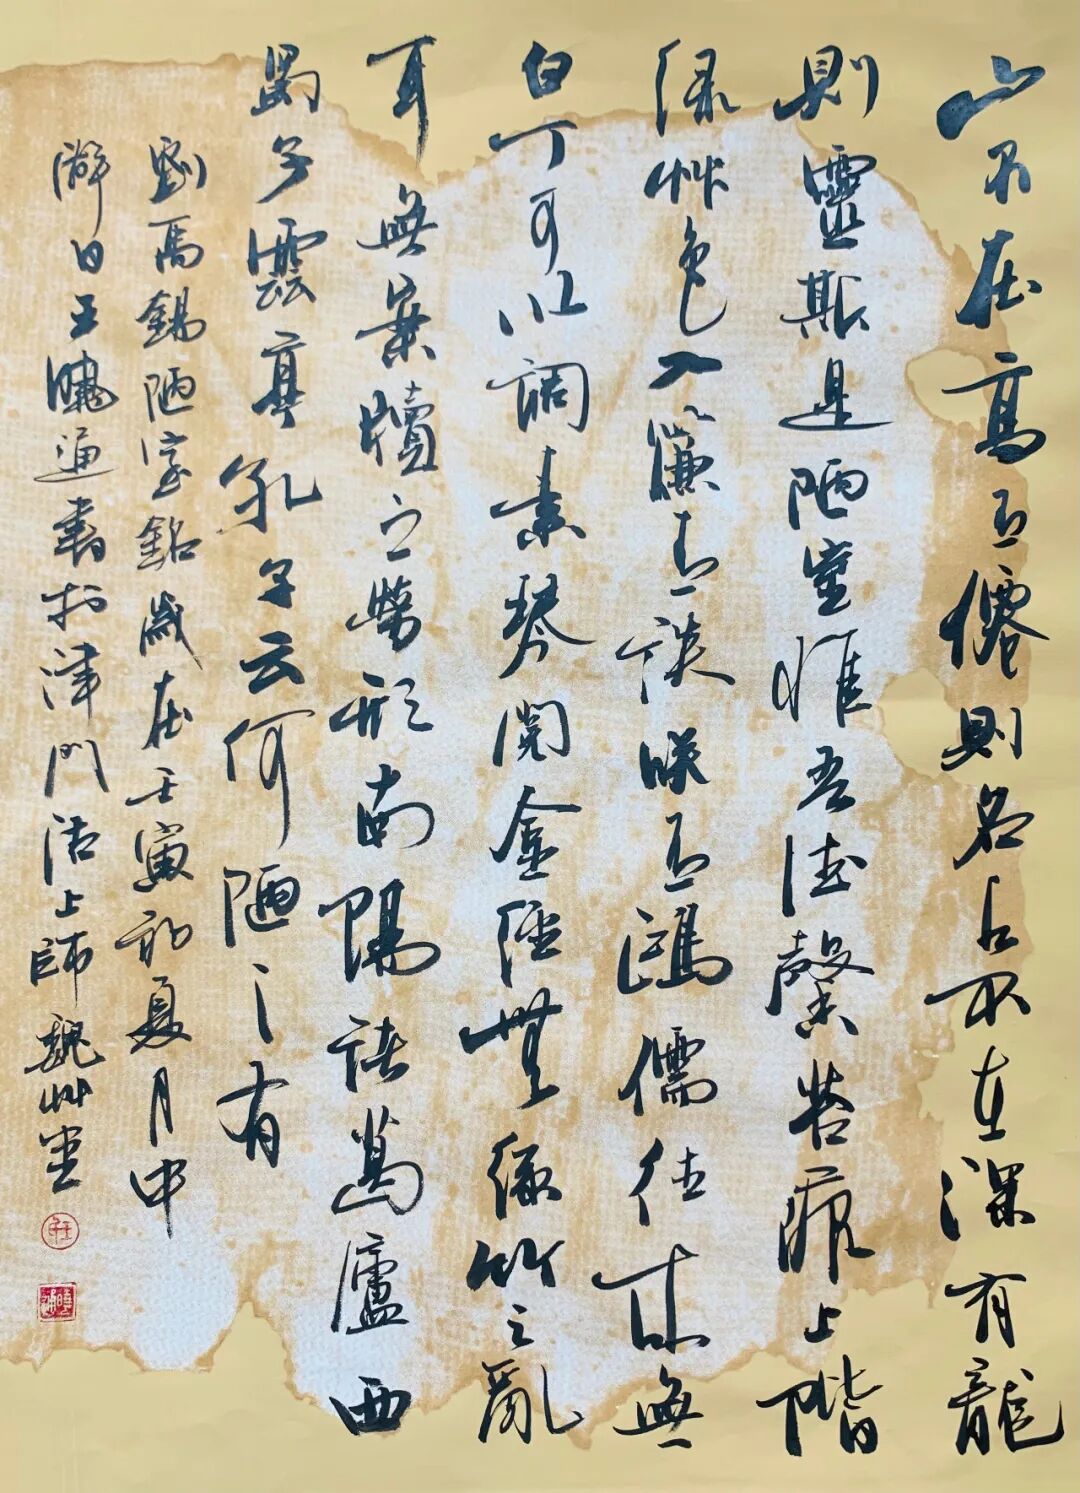 山不在高有僊則名水不在深有龍
則靈斯是陋室惟吾德馨苔痕上階
綠艸色入簾青談咲有鴻儒往來無
白丁可以調素琴閱金經無絲竹之亂
耳無案牘之勞形南陽諸葛廬西
蜀子雲亭孔子云何陋之有
劉禹錫陋室銘歲在壬寅初夏月中
澣日王曉通書於津門沽上師魏艸堂